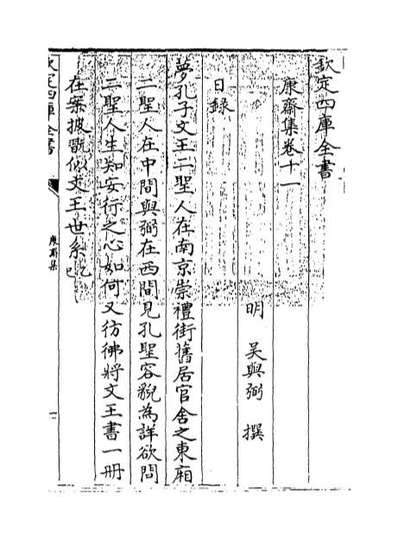 欽定四庫全書
康齋集卷十一
明 吳與弼 撰
日錄
夢孔子文王二聖人在南京崇禮街舊居官舍之東廂
二聖人在中間與弼在西間見孔聖容貌為詳欲問
二聖人生知安行之心如何又彷彿將文王書一冊
在案披翫似文王世系乙巳
欽定四庫全書
康齋集
一